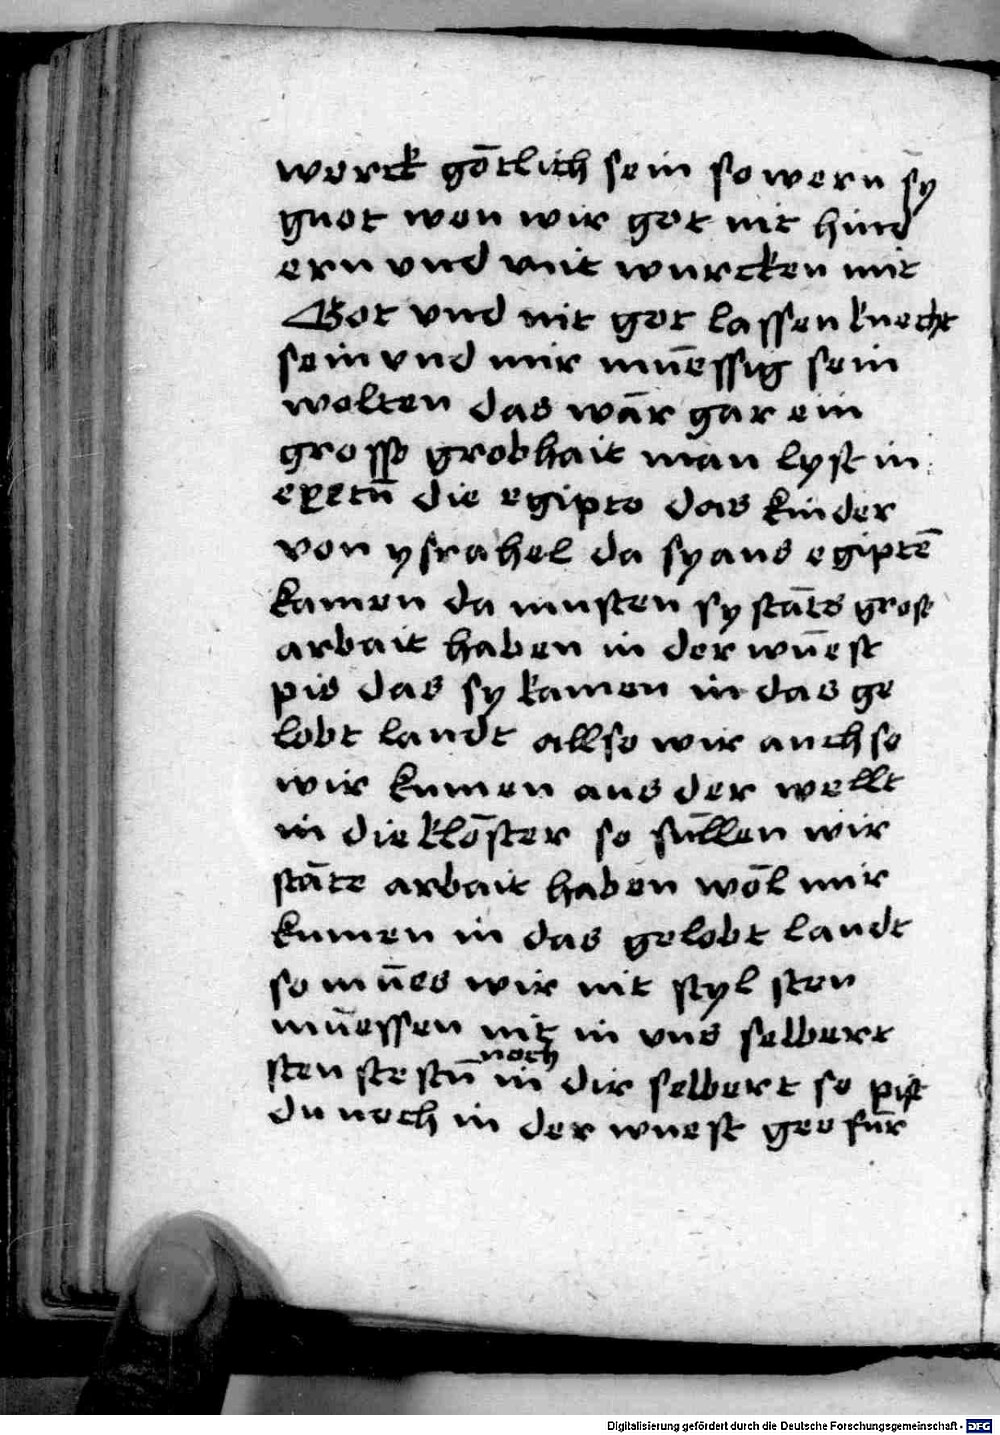 werck gōtlich sein so wern sy
guot wen wir got nit hind
ern vnd mit wurcken mit
Got vnd nit got lassen knecht
sein vnd mir mūessig sein
wolten das wār gar ein
grosse grobhait man lyst in
die egipto das kinder
von ysrahel da sy aus egiptē
kamen da musten sy stāts grose
arbait haben in der wūest
pis das sy kamen in das ge
lobt landt allso wir auch so
wir kumen aus der wellt
in die klōster so sūllen wir
stāte arbait haben wōl mir
kumen in das gelobt landt
so mūes wir nit styl sten
mūessen nit in vns selbert
sten ste stū noch in dir selbert so pist
du noch in der wuest gee fūr
Digitalisierung gefördert durch die Deutsche Forschungsgemeinschaft - DFG